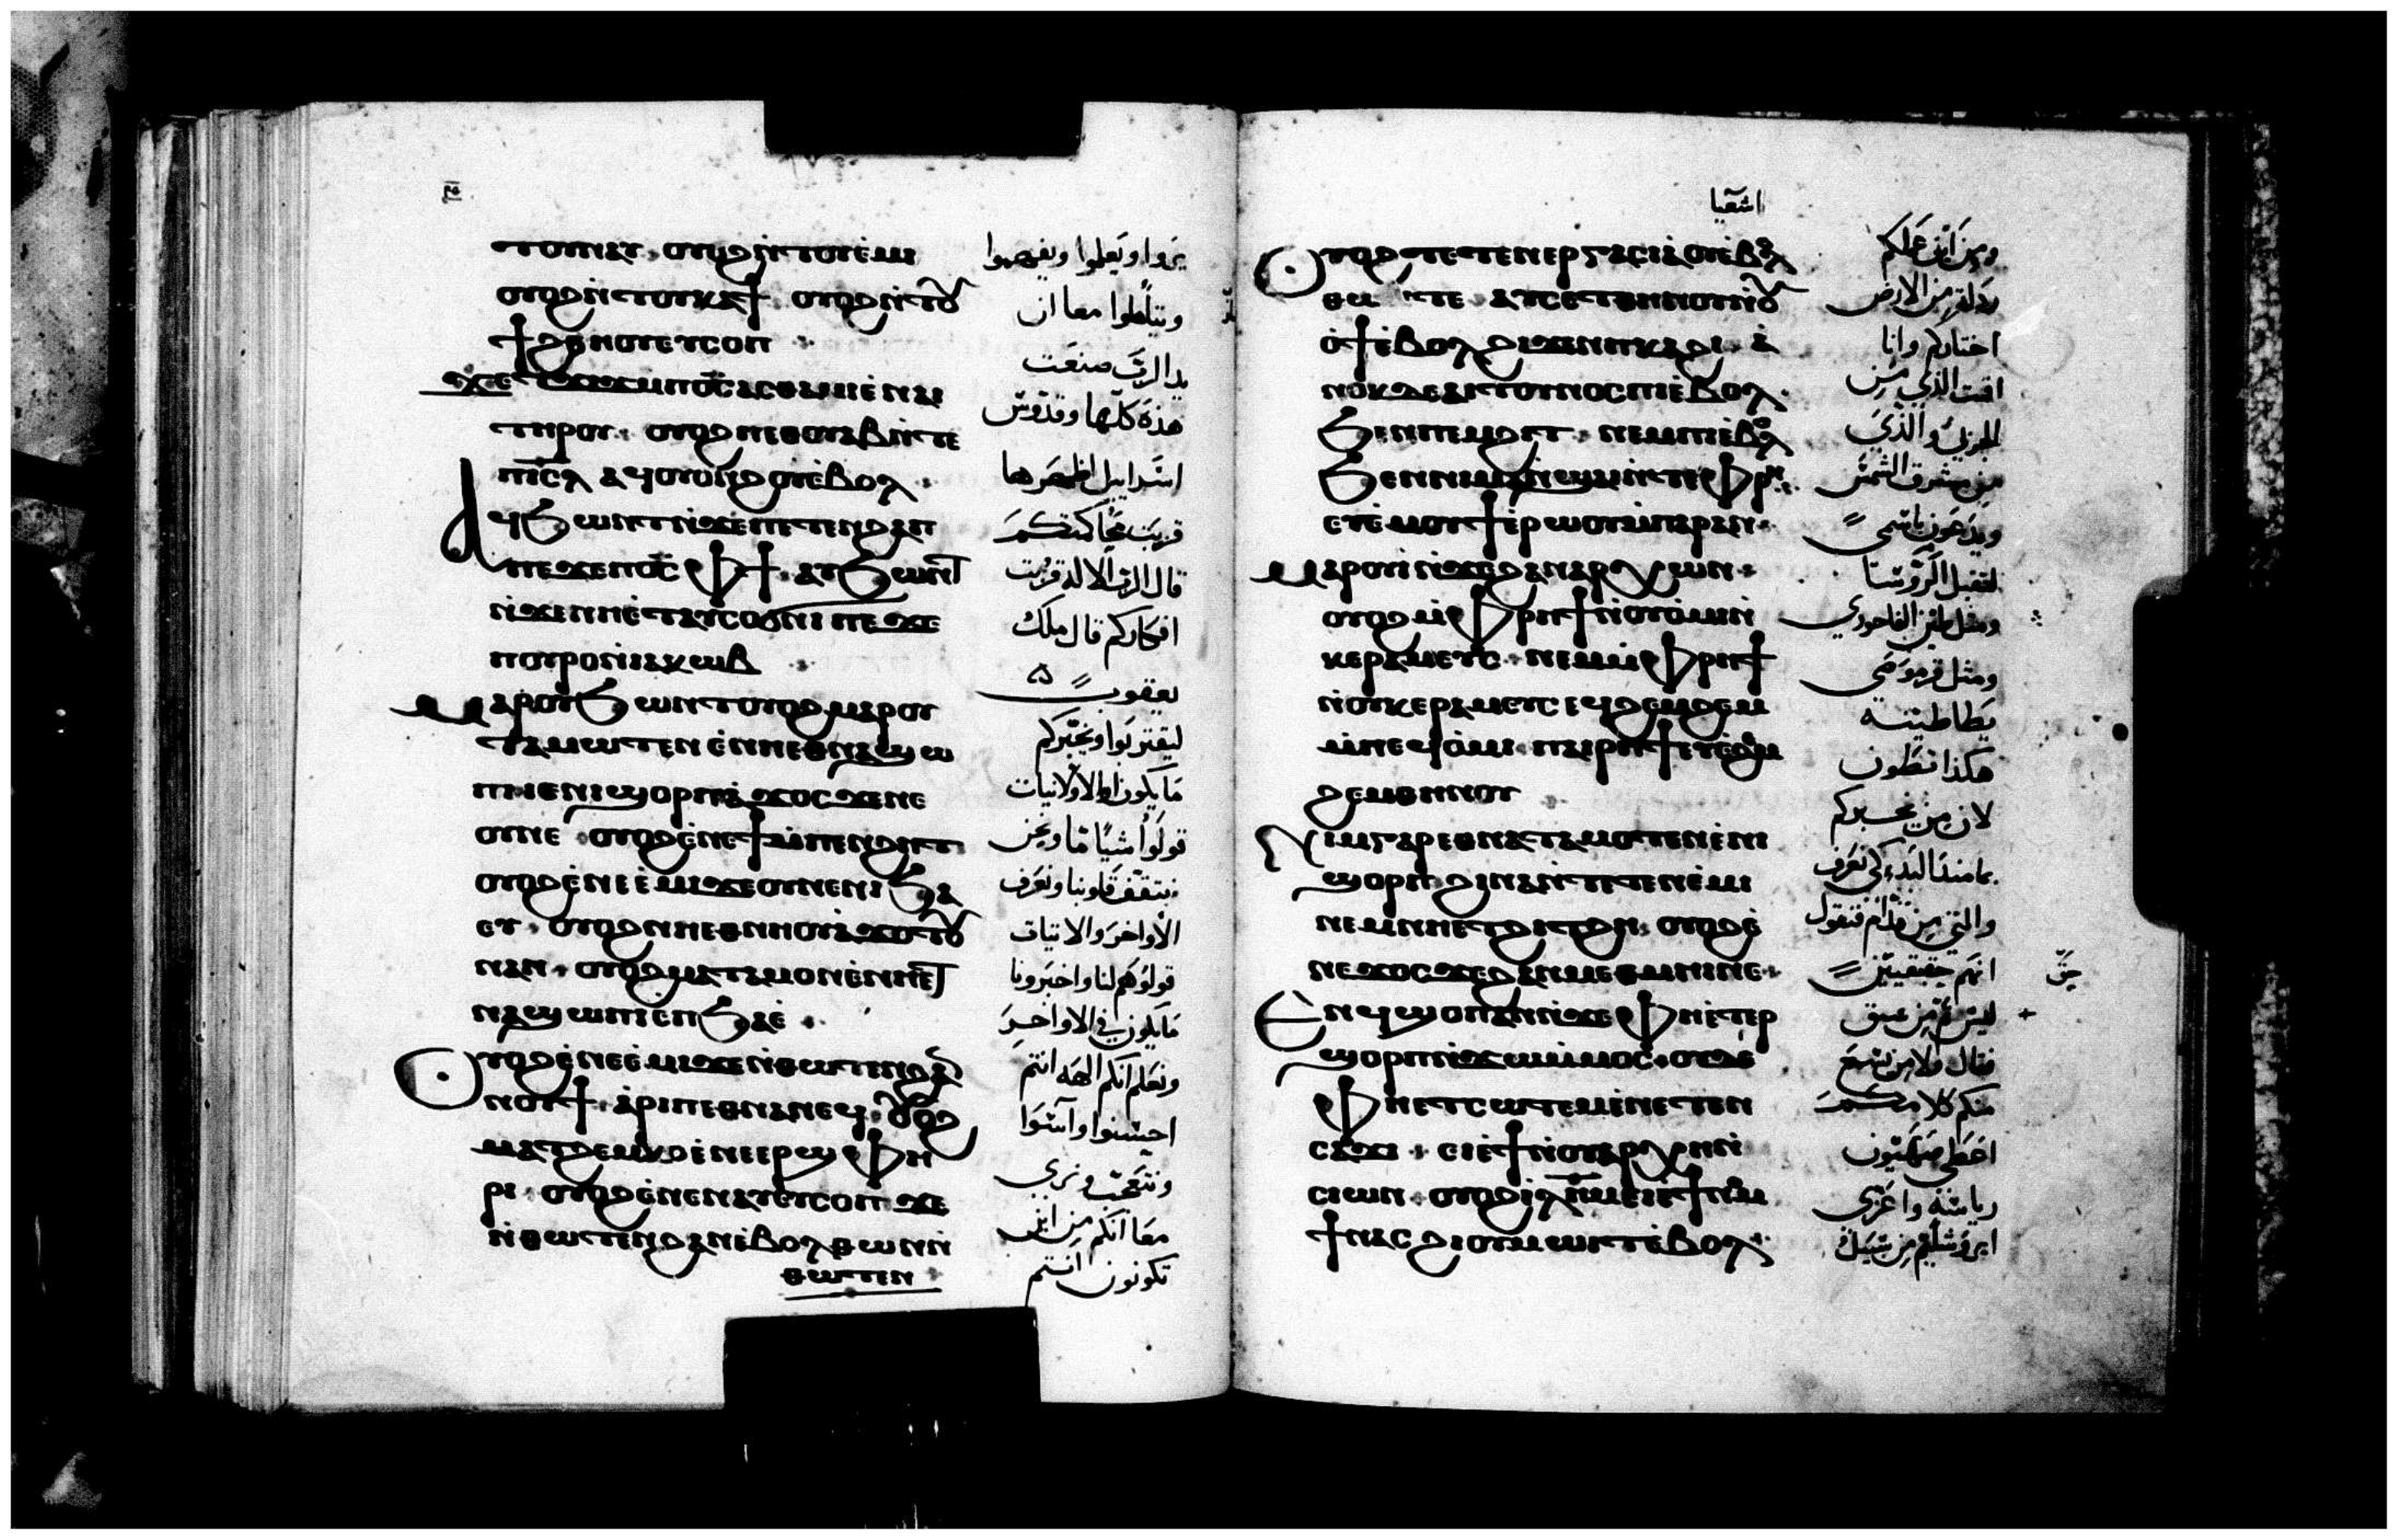 ⲧⲟⲩⲛⲁⲩ · ⲟⲩⲟϩ ⲛ̀ⲧⲟⲩⲉ̀ⲙⲓ
ⲟⲩⲟϩ ⲛ̀ⲧⲟⲩⲕⲁϯ · ⲟⲩⲟϩ ⲛ̀ⲧⲟⲩ
ϯϩⲑⲏⲟⲩ ⲉⲩⲥⲟⲡ
ϫⲉ ⲧϫⲓϫ ⲙ̀ⲡⲟ̅ⲥ̅ ⲁⲥⲑⲁⲙⲓⲉ̀ ⲛⲁⲓ
ⲧⲏⲣⲟⲩ · ⲟⲩⲟϩ ⲡⲉⲑⲟⲩⲁⲃ ⲛ̀ⲧⲉ
ⲡⲓ̅ⲥ̅ⲗ̅ ⲁϥⲟⲩⲟⲛϩⲟⲩ ⲉ̀ⲃⲟⲗ
ⲁϥϧⲱⲛⲧ ⲛ̀ϫⲉ ⲡⲉⲧⲉⲛϩⲁⲡ
ⲡⲉϫⲉ ⲡⲟ̅ⲥ̅ ⲫϯ · ⲁⲩϧⲱⲛⲧ
ⲛ̀ϫⲉ ⲛⲉ̀ⲧⲁⲩⲥⲟϭⲛⲓ ⲡⲉϫⲉ
ⲡⲟⲩⲣⲟ ⲛ̀ⲓⲁⲕⲱⲃ
ⲙⲁⲣⲟⲩϧⲱⲛⲧ ⲟⲩⲟϩ ⲙⲁⲣⲟⲩ
ⲧⲁⲙⲱⲧⲉⲛ ⲉ̀ⲛⲛⲉⲑⲛⲁϣⲱ
ⲡⲓ ⲓⲉ ⲛⲓϣⲟⲣⲡ ⲁ̀ϫⲟⲥ ϫⲉ ⲛⲉ
ⲟⲩⲛⲉ · ⲟⲩⲟϩ ⲉ̀ⲛⲉϯⲙ̀ⲡⲉⲛϩⲏⲧ
ⲟⲩⲟϩ ⲉ̀ⲛⲉⲉ̀ⲙⲓ ϫⲉ ⲟⲩⲛⲉ ⲛⲓϧⲁ
ⲉⲩ · ⲟⲩⲟϩ ⲛⲉⲑⲛⲏⲟⲩ ⲁ̀ϫⲟⲧⲟⲩ
ⲛⲁⲛ · ⲟⲩⲟϩ ⲙⲁⲧⲁⲙⲟⲛ ⲉ̀ⲛⲛⲉⲑ
ⲛⲁϣⲱⲡⲓ ⲉⲡϧⲁⲉ̀
ⲟⲩⲟϩ ⲉ̀ⲛⲉⲉ̀ⲙⲓ ϫⲉ ⲛ̀ⲑⲱⲧⲉⲛ ϩⲁⲛ
ⲛⲟⲩϯ · ⲁ̀ⲣⲓⲡⲉⲑⲛⲁⲛⲉϥ · ⲟⲩⲟϩ
ⲙⲁⲧϩⲉⲙⲕⲟ ⲉ̀ⲛⲉⲉⲣϣⲫⲏ
ⲣⲓ · ⲟⲩⲟϩ ⲉ̀ⲛⲉⲛⲁⲩ ⲉⲩⲥⲟⲡ ϫⲉ
ⲛ̀ⲑⲱⲧⲉⲛ ϩⲁⲛⲉ̀ⲃⲟⲗ ⲑⲱⲛ ⲛ̀
ⲑⲱⲧⲉⲛ
يروا ويعلموا ويفهموا
ويتاملوا معا ان
يد الرب صنعت
هذه كلها وقدوس
اسراييل اظهرها
قربت محاكمتكم
قال الرب الاله قربت
افكاركم قال ملك
يعقوب
ليقتربوا ونخبركم
ما يكون او الاولانيات
قولوا اشيا ما ونحن
نتقف قلوبنا ونعرف
الاواخر والاتيات
قولوهم لنا واخبرونا
ما يكون في الاواخر
ونعلم انكم الهه انتم
احسنوا واسوا
ونتعجب ونري
معا انكم من اين
تكونون انتم
اشعيا
ⲟⲩⲟϩ ⲧⲉⲧⲉⲛⲉⲣⲅⲁⲥⲓⲁ ⲟⲩⲉ̀ⲃⲟⲗ
ⲑⲱⲛ ⲧⲉ ⲁⲩⲥⲉⲧⲡ ⲑⲏⲛⲟⲩ ⲛ̀ⲟⲩ
ⲟ̀ϯ ⲉ̀ⲃⲟⲗ ϩⲓϫⲉⲛ ⲡⲕⲁϩⲓ · ⲁ̀
ⲛⲟⲕ ⲇⲉ ⲁⲓⲧⲟⲩⲛⲟⲥ ⲡⲓⲉ̀ⲃⲟⲗ
ϧⲉⲛ ⲡⲉⲙϩⲓⲧ · ⲛⲉⲙ ⲡⲓⲉ̀ⲃⲟⲗ
ϧⲉⲛ ⲛⲓⲙⲁⲛ̀ϣⲁⲓ ⲛ̀ⲧⲉ ⲫⲣⲏ
ⲉⲩⲉ̀ⲙⲟⲩϯ ⲉ̀ⲣⲱⲟⲩ ⲙ̀ⲡⲁⲣⲁⲛ
ⲙⲁⲣⲟⲩⲓ̀ ⲛ̀ϫⲉ ϩⲁⲛⲁⲣⲭⲱⲛ
ⲟⲩⲟϩ ⲙ̀ⲫⲣⲏϯ ⲛ̀ⲟⲩⲟ̀ⲙⲓ ⲛ̀
ⲕⲉⲣⲁⲙⲉⲩⲥ · ⲛⲉⲙ ⲙ̀ⲫⲣⲏϯ
ⲛ̀ⲟⲩⲕⲉⲣⲁⲙⲉⲩⲥ ⲉϥϩⲉⲙϩⲉⲙ
ⲙ̀ⲡⲉϥⲟ̀ⲙⲓ · ⲡⲁⲓⲣⲏϯ ⲉⲩⲉ̀ϩⲉⲙ
ϩⲉⲙ ⲑⲏⲛⲟⲩ
ⲛⲓⲙ ⲅⲁⲣ ⲉⲑⲛⲁⲧⲁⲙⲟⲧⲉⲛ ⲉ̀ⲛⲓ
ϣⲟⲣⲡ ϩⲓⲛⲁ ⲛ̀ⲧⲉⲛⲉ̀ⲙⲓ
ⲛⲉⲙ ⲛⲉⲧϩⲓⲧϩⲏ · ⲟⲩⲟϩ ⲉ̀
ⲛⲉϫⲟⲥ ϫⲉ ϩⲁⲛⲙⲉⲑⲙⲏⲓ ⲛⲉ
ⲉⲛϥϣⲟⲡ ⲁⲛ ⲛ̀ϫⲉ ⲫⲏ ⲉ̀ⲧⲉⲣ
ϣⲟⲣⲡ ⲛ̀ϫⲱ ⲙ̀ⲙⲟⲥ · ⲟⲩⲇⲉ
ⲫⲏ ⲉⲧⲥⲱⲧⲉⲙ ⲉ̀ⲛⲉⲧⲉⲛ
ⲥⲁϫⲓ · ⲉⲓⲉ̀ϯ ⲛ̀ⲟⲩⲁⲣⲭⲏ ⲛ̀
ⲥⲓⲱⲛ · ⲟⲩⲟϩ ⲓ̅ⲗ̅ⲏ̅ⲙ̅ ⲉⲓⲉ̀ϯⲛⲟⲙ
ϯ ⲛⲁⲥ ϩⲓ ⲟⲩⲙⲱⲓⲧ ⲉ̀ⲃⲟⲗ
ومن اين عملكم
رذلة من الارض
اختاركم وانا
اقمت الذي من
البحري والذي
من مشرق الشمس
ويدعون باسمي
لتقبل الروسا
ومثل طين الفاخوري
ومثل قرموصي
يطا طينته
هكذا تطون
لان من يخبركم
بما منذ البدء كي نعرف
والتي من قدام فنقول
انهم حقيقيين
ليس ثم من سبق
فقال ولا من يسمع
منكم كلامكم
اعطي صهيون
رياسته واعزي
ايروشليم من سبيل